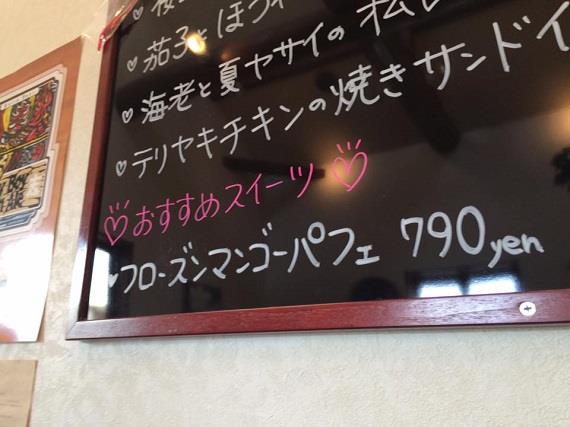 茄子とほうれ
♡海老と夏ヤサイの
♡テリヤキチキンの焼きサンドイ
♡おすすめスイーツ♡
♥フローズンマンゴーパフェ 790yen